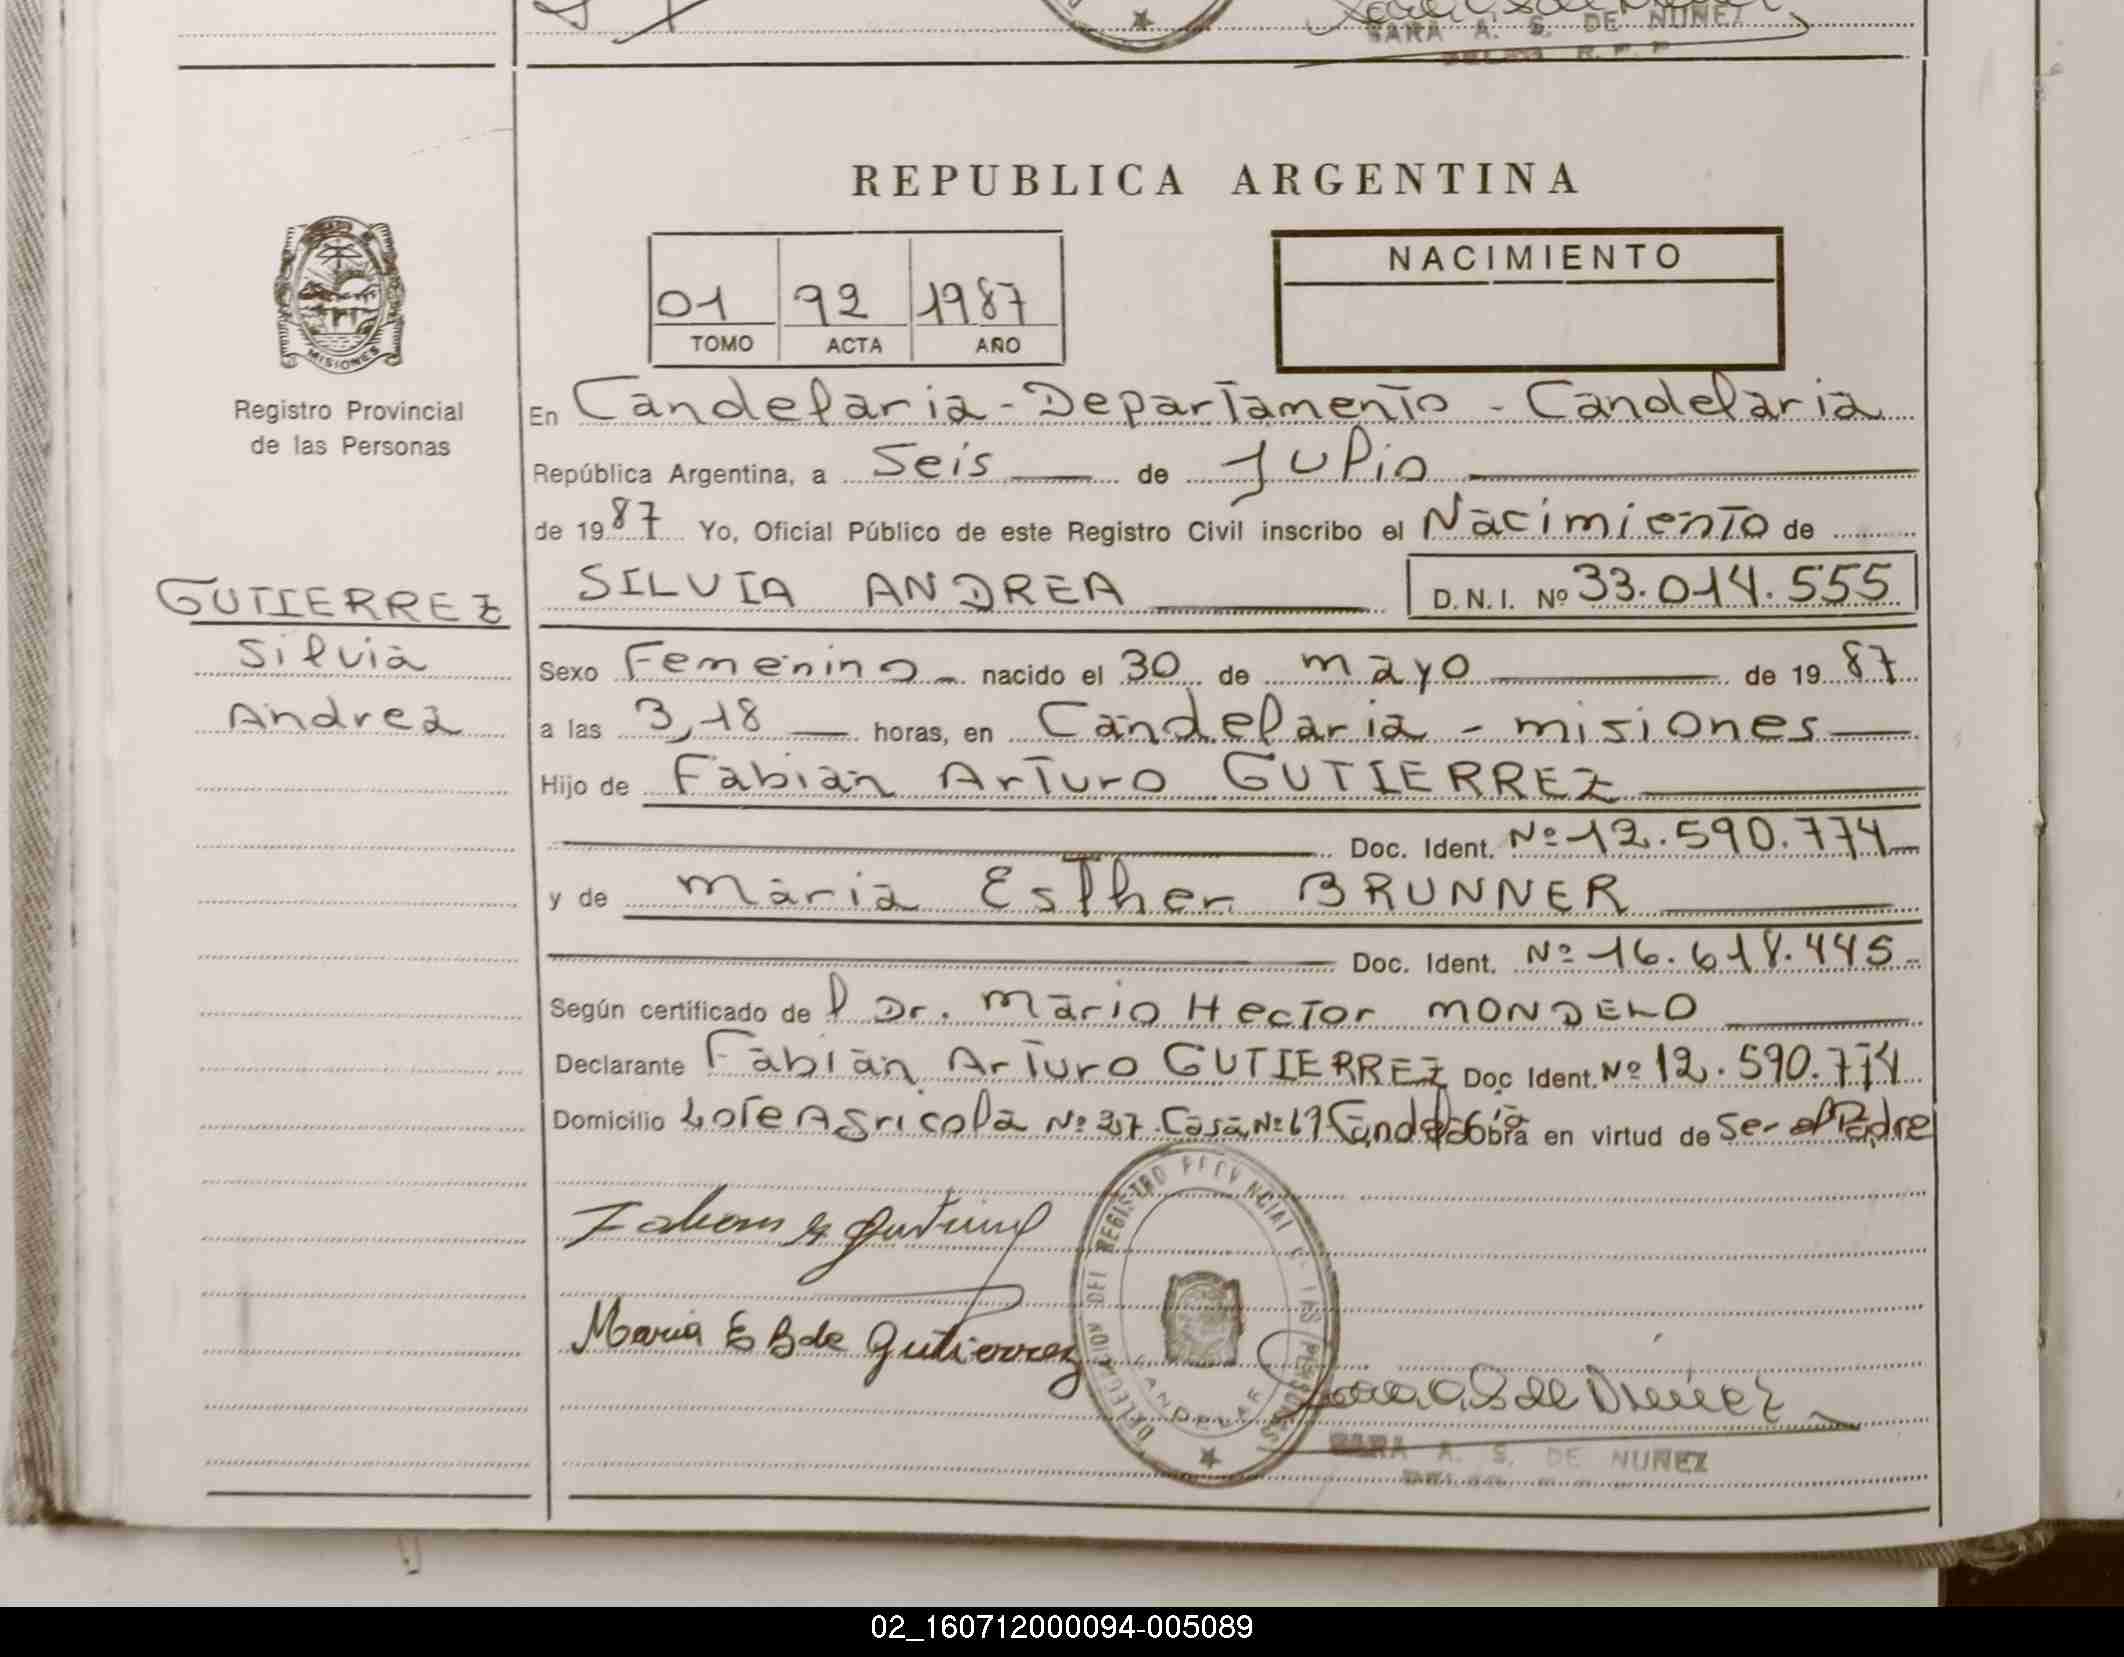 SARA A. S. DE NUÑEZ
REPUBLICA ARGENTINA
MISIONES
Registro Provincial
de las Personas
01 92 1987
TOMO ACTA AÑO
NACIMIENTO
En Candelaria - Departamento - Candelaria
República Argentina, a Seis de Julio
de 1987 Yo, Oficial Público de este Registro Civil inscribo el Nacimiento de
GUTIERREZ
Silvia
Andrea
SILVIA ANDREA D.N.I. Nº 33.014.555
Sexo Femenino nacido el 30 de mayo de 1987
a las 3,18 horas, en Candelaria - misiones
Hijo de Fabian Arturo GUTIERREZ
Doc. Ident. Nº 12.590.774
y de Maria Esther BRUNNER
Doc. Ident. Nº 16.618.445
Según certificado de l Dr. Mario Hector MONDELO
Declarante Fabian Arturo GUTIERREZ Doc Ident. Nº 12.590.774
Domicilio Lote Agricola Nº 37 Casa Nº 69 Obra en virtud de Ser el Padre
DELEGACION DEL REGISTRO PROVINCIAL DE LAS PERSONAS
CANDELAR
Maria E B de Gutierrez
Sara A S de Nuñez
SARA A. S. DE NUÑEZ
02_160712000094-005089